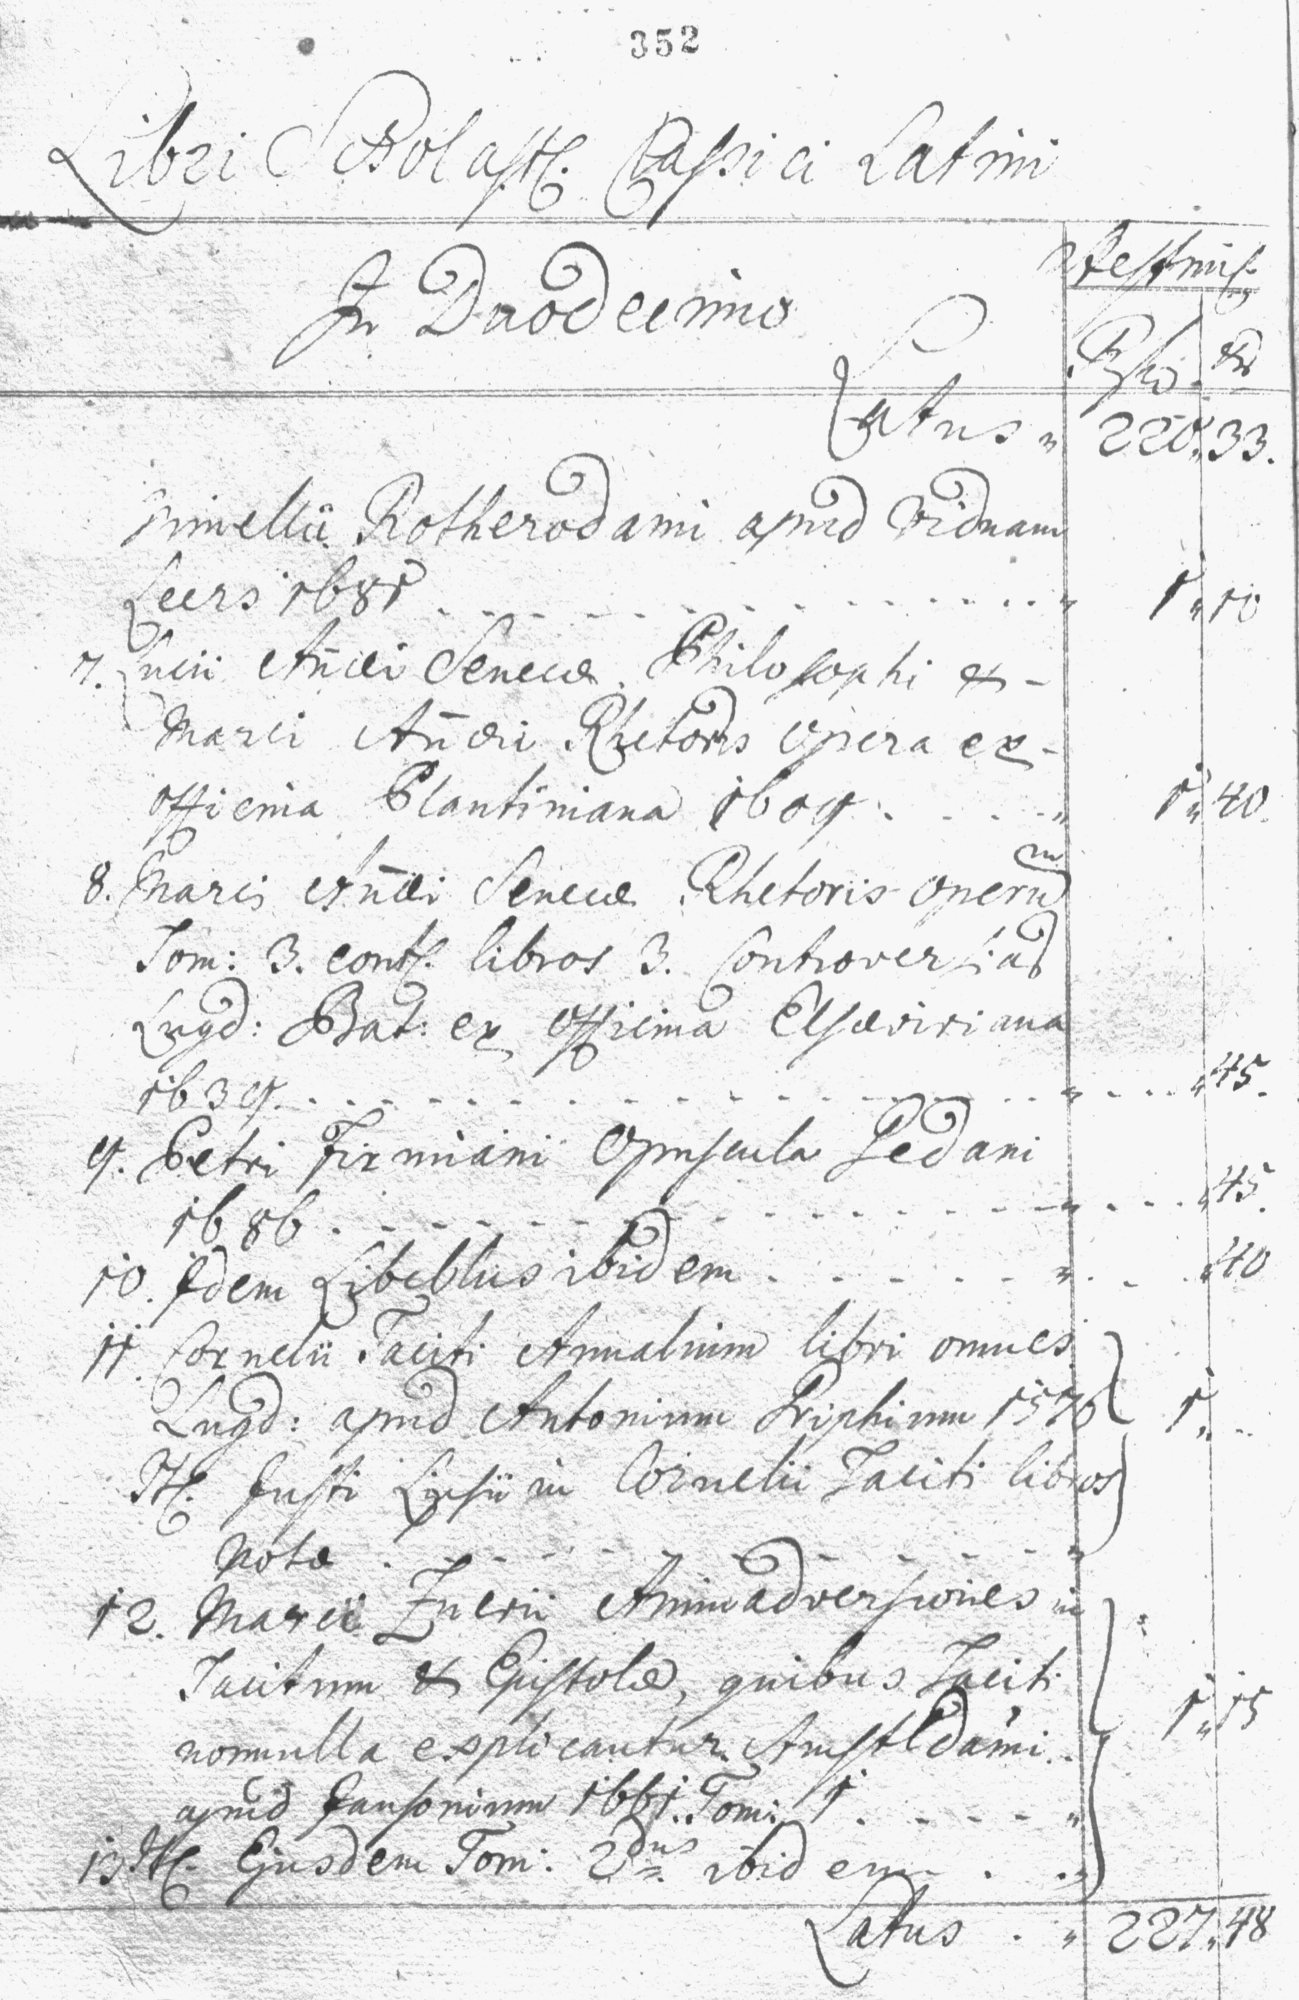 352
Libri Scholastl. Classici Latini
In Duodecimo
Aestimis.
Latus „ 220„ 33.
Pimellii Rotherodami apud Viduam
Leers 1681 „ 1„ 10
7. Lucii An̄æi Senecæ Philosophi &
Marci An̄æi Rhetoris opera ex
officina Plantiniana 1609. „ 1„ 40.
8. Marci An̄æi Senecæ Rhetoris operum
Tom: 3. contl. libros 3. Controversiad
Lugd: Bat: ex officina Elsæviriana
1639. „ „ 45.
9. Petri Firmiani Opuscula Pedani
1686. „ „ 45.
10. Idem Libellus ibidem „ „ 40
11. Cornelii Taciti Annalium libri omnes
Lugd: apud Antonium Griphium 1576 1„
Itl. Justi Lipsii in Cornelii Taciti libros
Notæ „
12. Marci Zuerii Animadversiones in
Tacitum & Epistolæ, quibus Taciti
nonnulla explicantur. Amstldami. 1„ 15
apud Jansonium 1661. Tom: 1. „
13 Itl. Ejusdem Tom: 2dus ibidem „
Latus „ 227„ 48